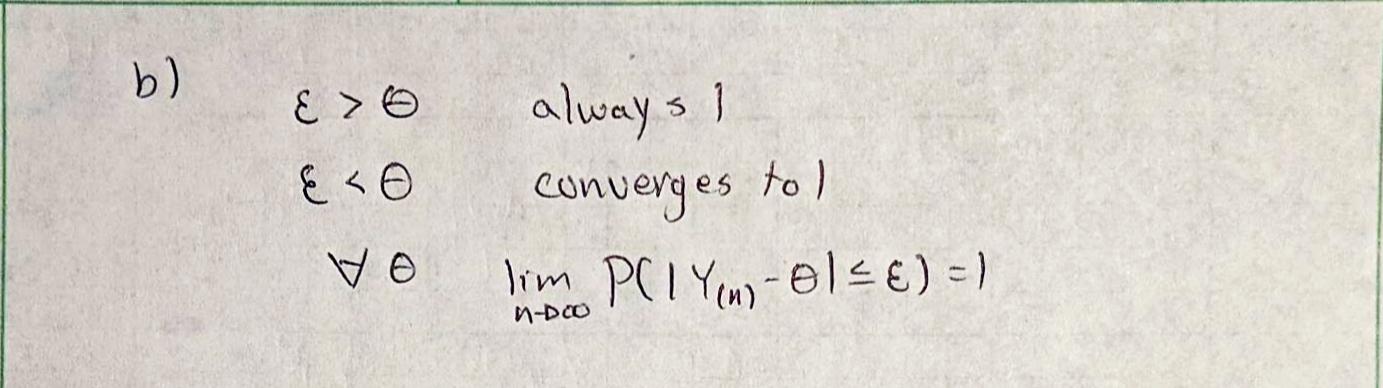 b)
ε > θ always 1
ε < θ converges to 1
∀ θ lim n→∞ P(|Y(n) - θ| ≤ ε) = 1